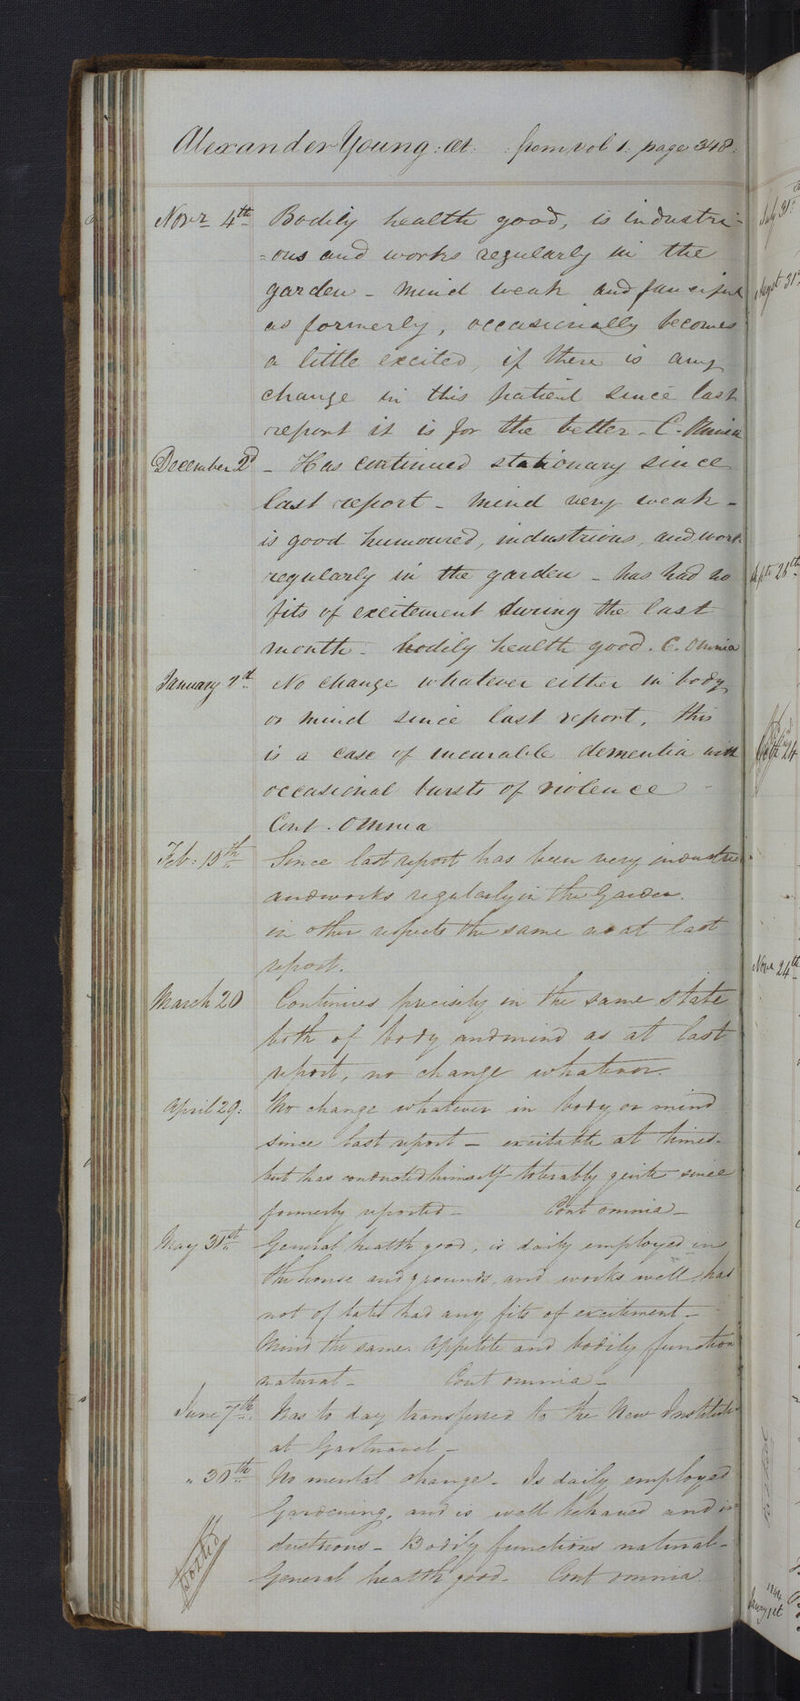 Alexander Young: Æt: from vol 1. page 348.
Novr 4th Bodily health good, is industri-
=ous and works regularly in the
garden - mind weak and fanciful
as formerly, occasionally becomes
a little excited, if there is any
change in this patient since last
report it is for the better - C. Omnia
December 2d - Has continued stationary since
last report - mind very weak -
is good humoured, industrious, and work
regularly in the garden - has had no
fits of excitement during the last
month - bodily health good. C. Omnia
January 2d No change whatever either in body
or mind since last report, this
is a case of incurable dementia with
occasional bursts of violence -
Cont. Omnia
Feb: 15th Since last report has been very industri
and works regularly in the Garden.
in other respects the same as at last
report.
March 20 Continues precisely in the same state
both of body and mind as at last
report, no change whatever.
April 29: No change whatever in body or mind
since last report - excitable at times -
but has conducted himself tolerably quite since
formerly reported - Cont omnia -
May 31st General health good, is daily employed in
the house and grounds, and works well, has
not of late had any fits of excitement -
Mind the same. Appetite and bodily function
natural - Cont omnia -
June 7th. Was to day transferred to the New Institute
at Gartnavel -
" 30th No mental change. Is daily employed
Gardening, and is well behaved and in
dustrious - Bodily functions natural -
General health good. Cont omnia.
Posted
July 31st
Augst 31st
Septr 28th
Octr 24
Novr 24th
1844
Jany 1st